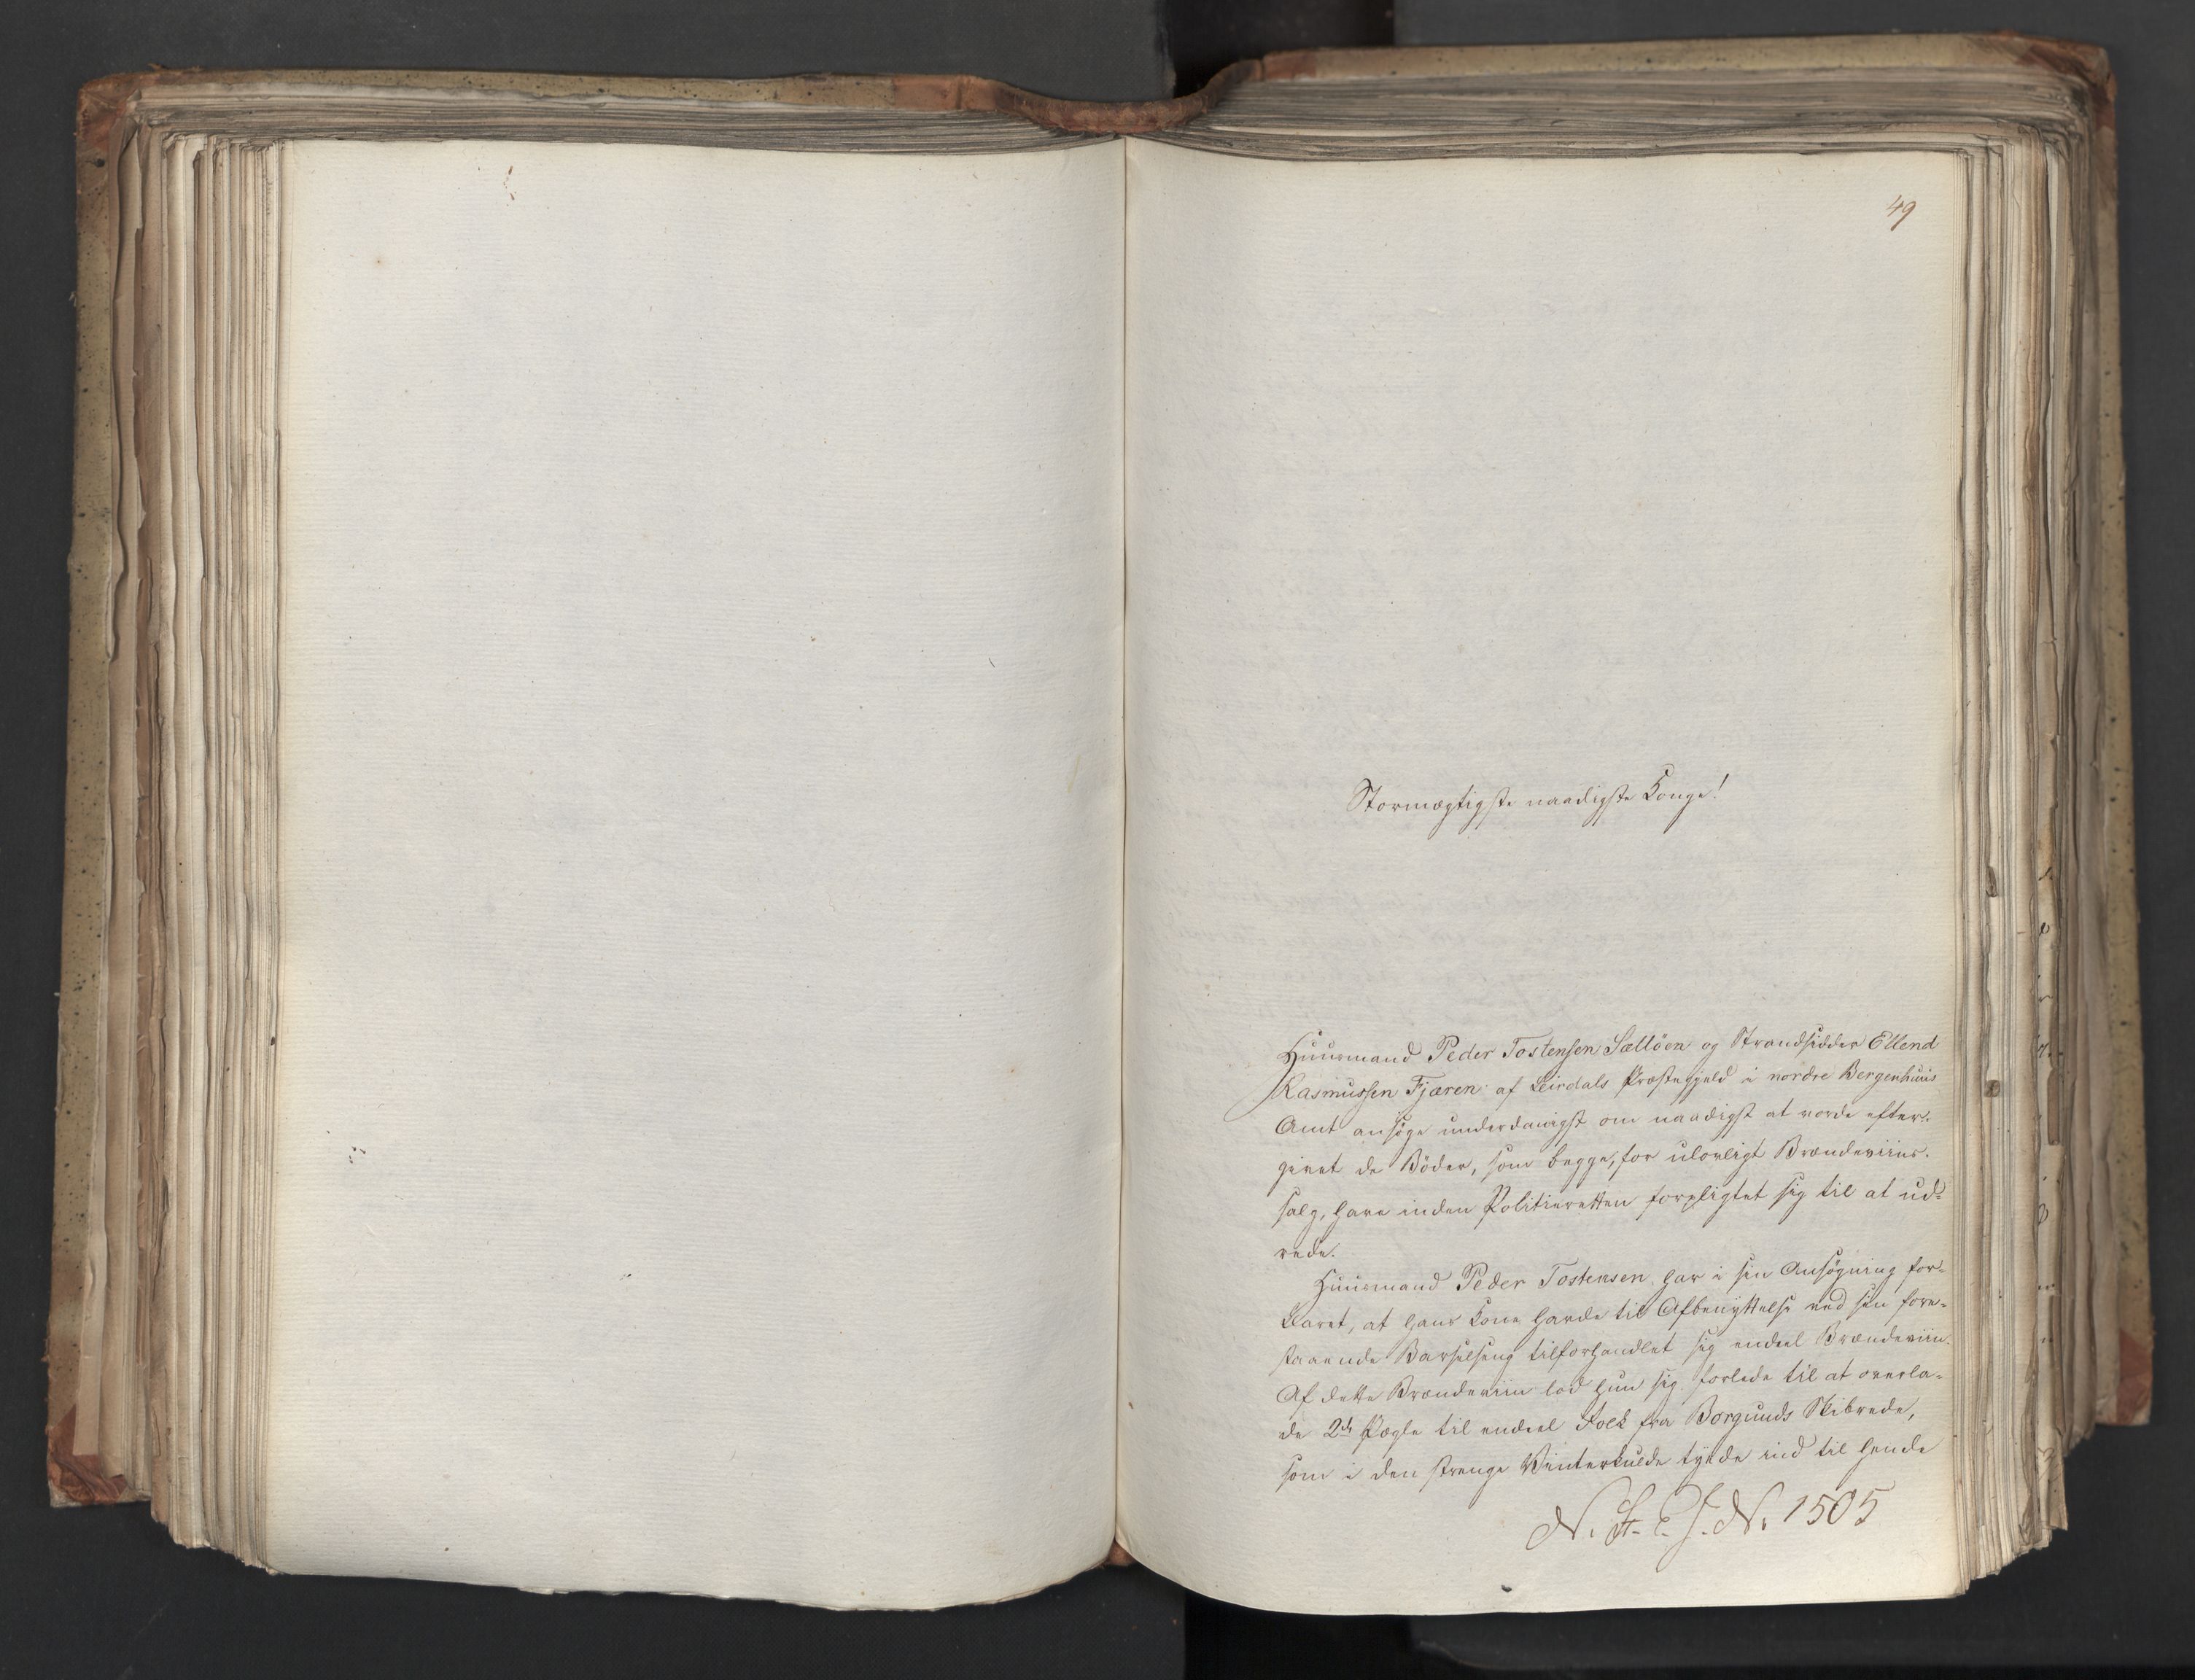 49
Stormægtigste naadigste Konge!
Huusmand Peder Tostensen Sælthöen og Strandsidder Ellend
Rasmussen Fjæren af Leirdals Præstegjeld i nordre Bergenhuus
Amt ansøge underdanigst om naadigst at vorde efter-
givet de Böder, som begge, for ulovligt Brændeviins-
salg, have inden Politieretten forpligtet sig til at ud-
rede.
Huusmand Peder Tostensen har i sin Ansøgning for-
klaret, at hans Kone havde til Afbenyttelse ved sin fore-
staaende Barselseng tilforhandlet sig endeel Brændeviin.
Af dette Brændeviin lod hun sig forlede til at overla-
de 2de Pægle til endeel Folk fra Borgunds Skibrede,
som i den strenge Vinterkulde tyede ind til hende
N. St. E. J. N. 1505